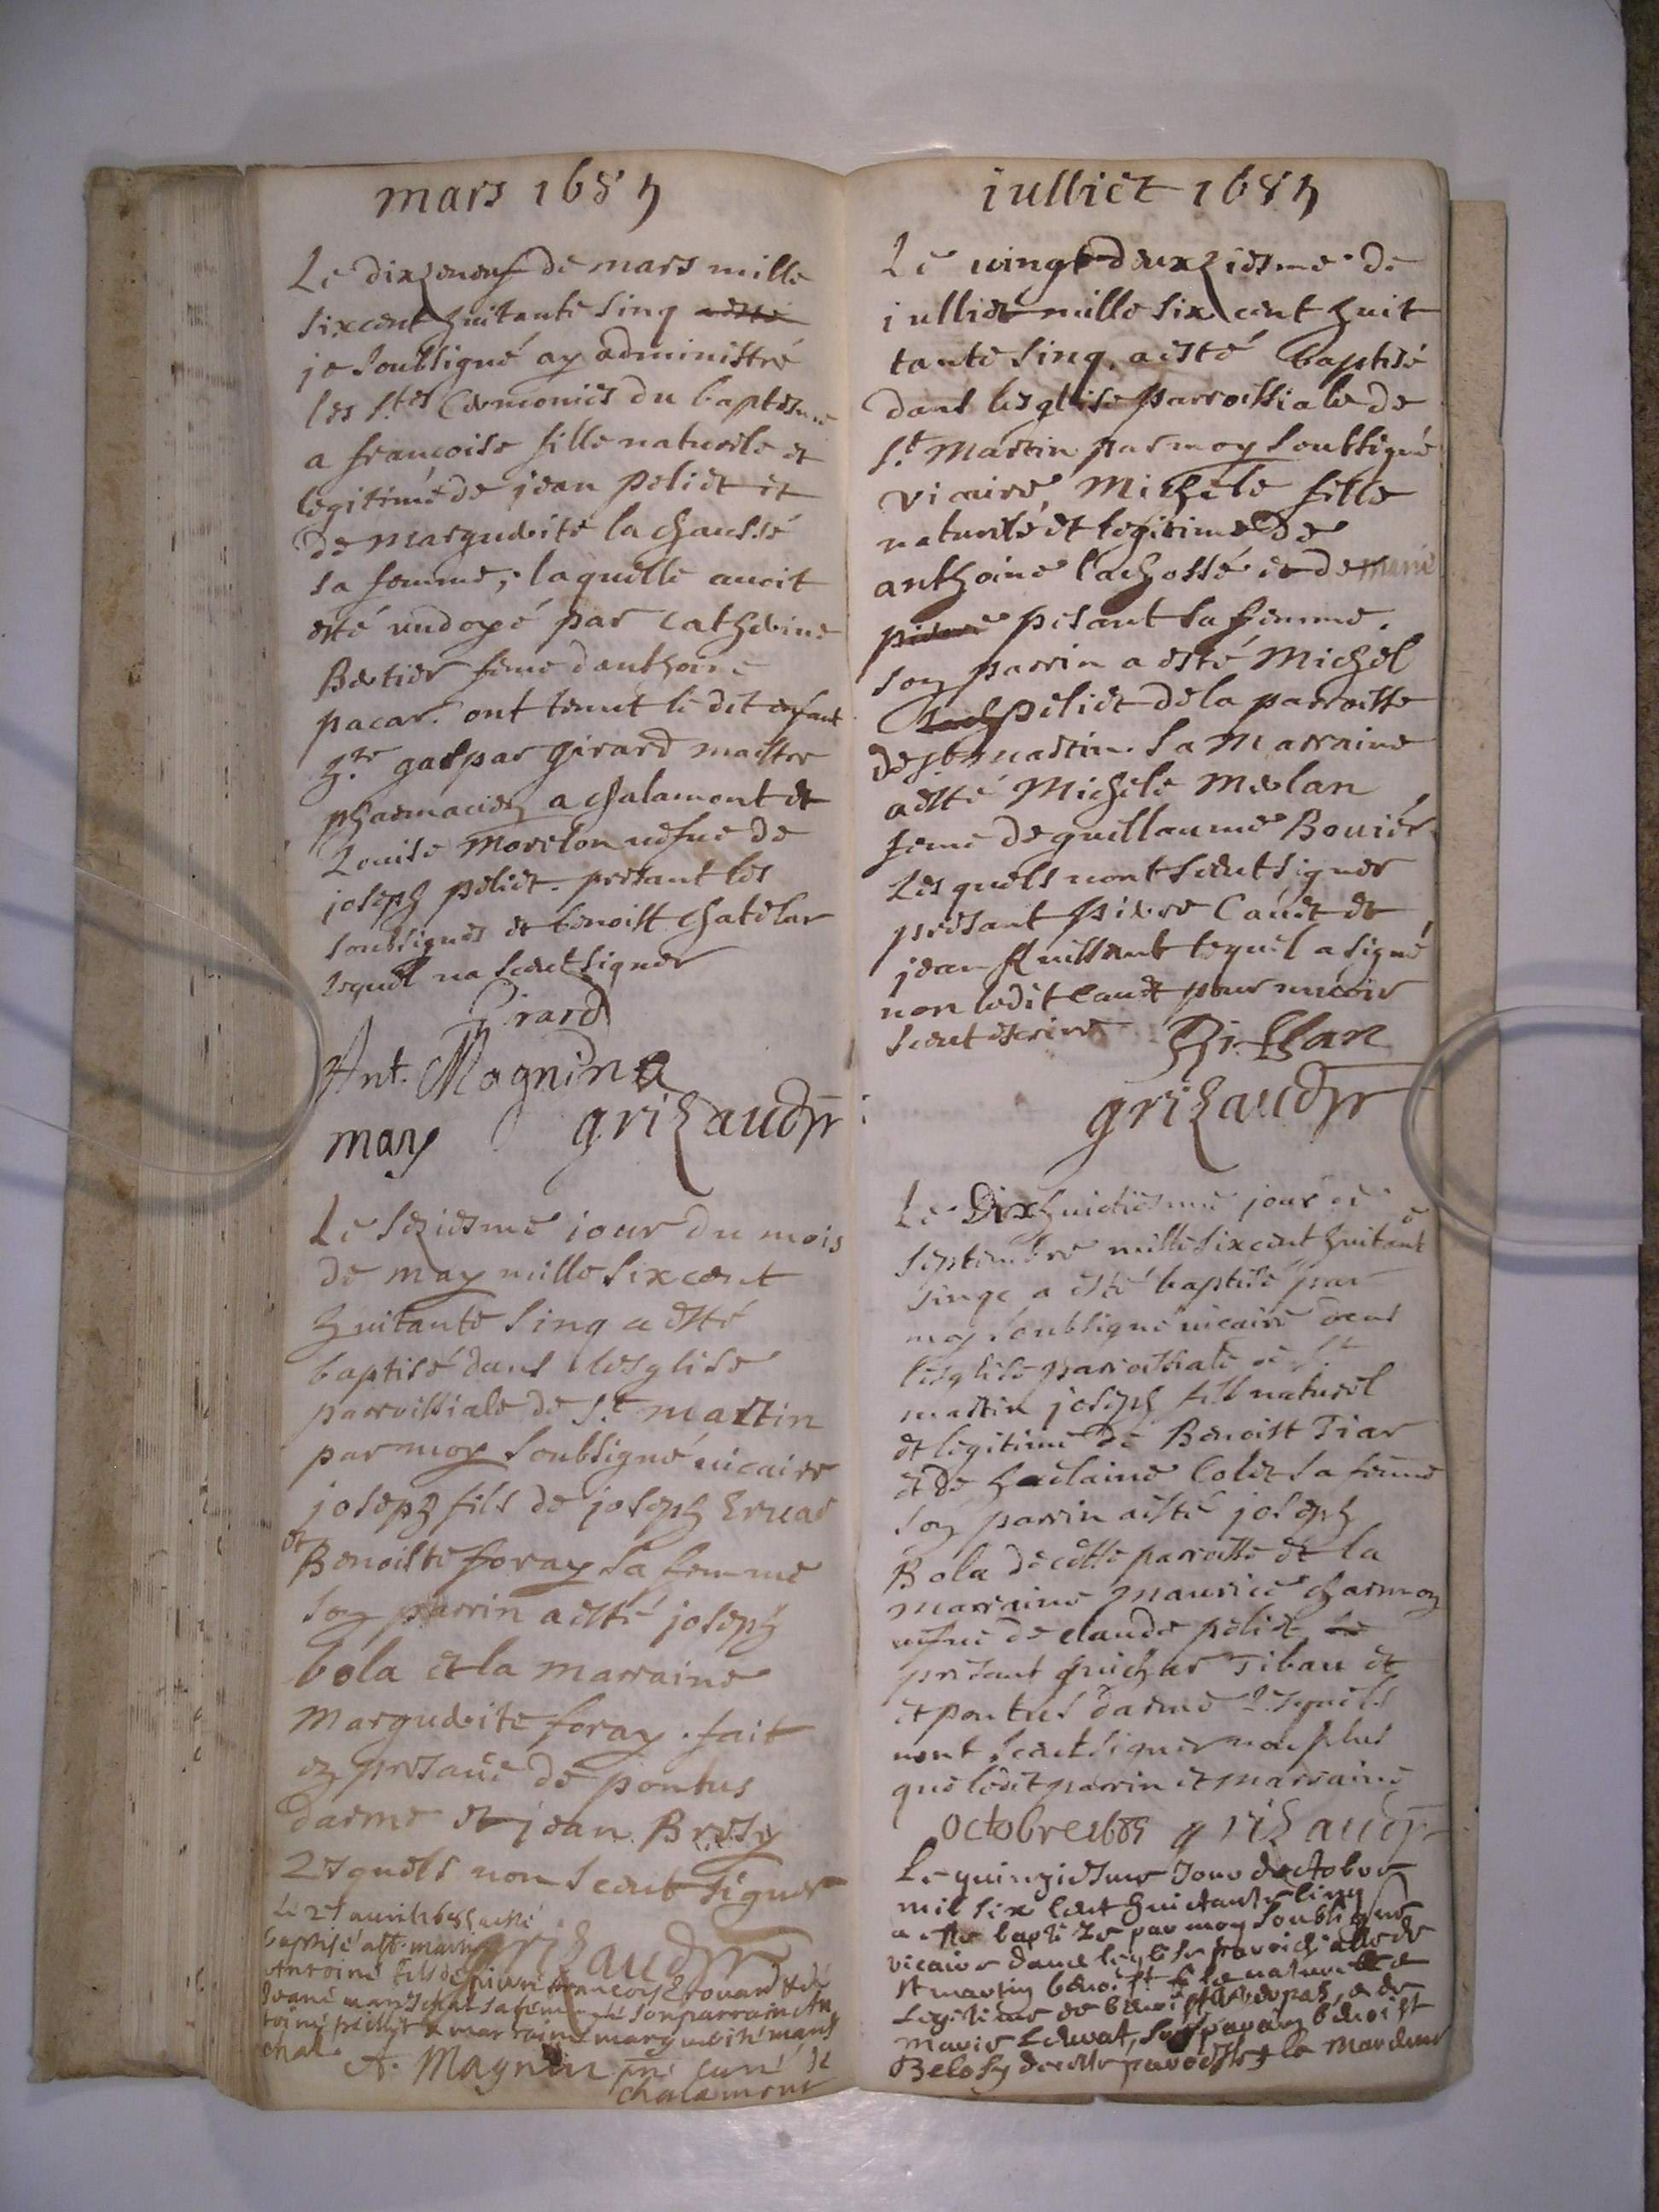 mars 1685
Le dixzeneuf de mars mille
sixcent huitante sinq aesté
je soubsigné ay administré
les s.tes Ceremonies du baptesme
a francoise fille naturele et
legitime de jean peliet et
de marguerite la chaussé
sa femme, laquelle auoit
esté undoyé par Catherine
Bertier feme danthoine
pacar. ont tenut le dit enfant
h.re gaspar girard maistre
pharmacien a chalamont et
Louise Morelon uefue de
joseph peliet. presant les
soubsignes et benoist chatelar
lequel na sceut signer
Girard
Ant. Magnin
grizaud ptr
may
Le seziesme iour du mois
de may mille sixcent
huitante sinq a esté
baptisé dans lesglise
parroissiale de s.t martin
par moy soubsigné uicaire
joseph fils de joseph
et
Benoiste foray sa femme
son parrin a esté joseph
bola et la marraine
marguerite foray. fait
en presance de pontus
darme et jean Bresy
Lesquels non sceut signer
Le 27 auril 1685 a esté
baptisé a st. martin
grizaud ptr
Antoine fils de pierre francois et de
Jeane mareschal sa femme son parrain An
toine peillet & marraine marguerite mares
chal.
A. Magnin curé de
chalamont
iulliet 1685
Le uingt deuxziesme de
iulliet mille six cent huit
tante sinq, a esté baptisé
dans lesglise parroissiale de
s.t Martin par moy soubsigné
vicaire, Michele fille
naturele et legitime de
anthoine lachossé et de marie
pierre pesant sa femme.
son parrin a esté Michel
peliet de la parroisse
de st martin. sa Marraine
a esté Michele Merlan
feme de guillaume Bouier
Lesquels nont sceut signer
presant pierre Cauet et
jean lequel a signé
non ledit Cauet pour nucoir
sceut escrire
grizaud ptr
Le Dixhuictiesme jour de
septembre mille sixcent huitante
sinqe a esté baptisé par
moy soubsigné uicaire dens
lesglise parroissiale de s.t
martin joseph fils naturel
et legitime de Benoist Tiar
et de Colet sa feme
son parrin a esté joseph
Bola de cette parroisse et la
marraine maurice charmoy
uefue de claude peliet le
presant guichar Tibau et
et pontus darme Lesquels
nont sceut signer non plus
que ledit parrin et marraine
octobre 1685 grizaud ptr
Le quinziesme Jour doctobre
mil six Cent huictante sinq
a este baptize par moy soubsigne
vicaire dans leglise parroichialle de
st martin benoist filz naturel et
Legitime de benoist et de
marie son parrain benoist
Belosy de cette paroisse & la Maraine